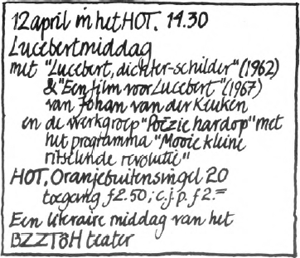 12 april in het HOT. 14.30
Lucebertmiddag
met "Lucebert, dichter-schilder" (1962)
& "Een film voor Lucebert" (1967)
van Johan van der Keuken
en de werkgroep "Poëzie hardop" met
het programma "Mooie kleine
ritselende revolutie"
HOT, Oranjebuitensingel 20
toegang ƒ2.50; c.j.p. ƒ2.=
Een literaire middag van het
BZZTÔH teater